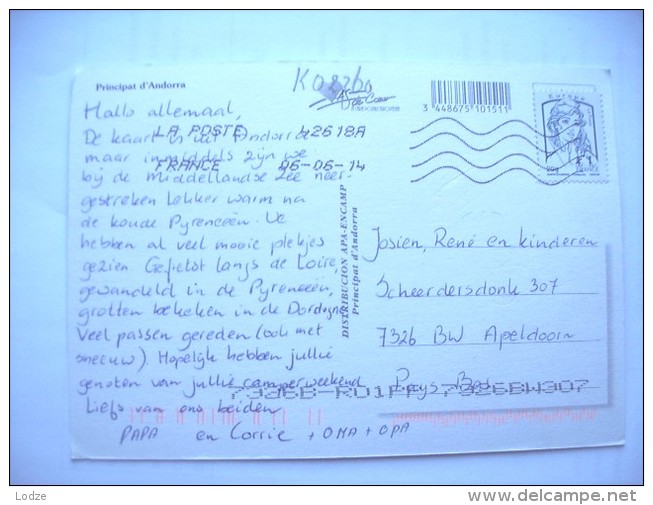 Principat d'Andorra
3 448675 101511
EUROPA
20g FRANCE
LA POSTE 42618A
FRANCE 06-06-14
Hallo allemaal,
De kaart is uit Andorra
maar inmiddels zijn we
bij de Middellandse Zee neer-
gestreken. Lekker warm na
de koude Pyreneeën. We
hebben al veel mooie plekjes
gezien. Gefietst langs de Loire,
gewandeld in de Pyreneeën,
grotten bekeken in de Dordogne
veel passen gereden (ook met
sneeuw). Hopelijk hebben jullie
genoten van jullie camperweekend
Liefs van ons beiden
PAPA en Corrie + OMA + OPA
DISTRIBUCION APA-ENCAMP
Principat d'Andorra
Josien, René en kinderen
Scheerdersdonk 307
7326 BW Apeldoorn
Pays Bas
7326BW307
Lodze
http://www.delcampe.net